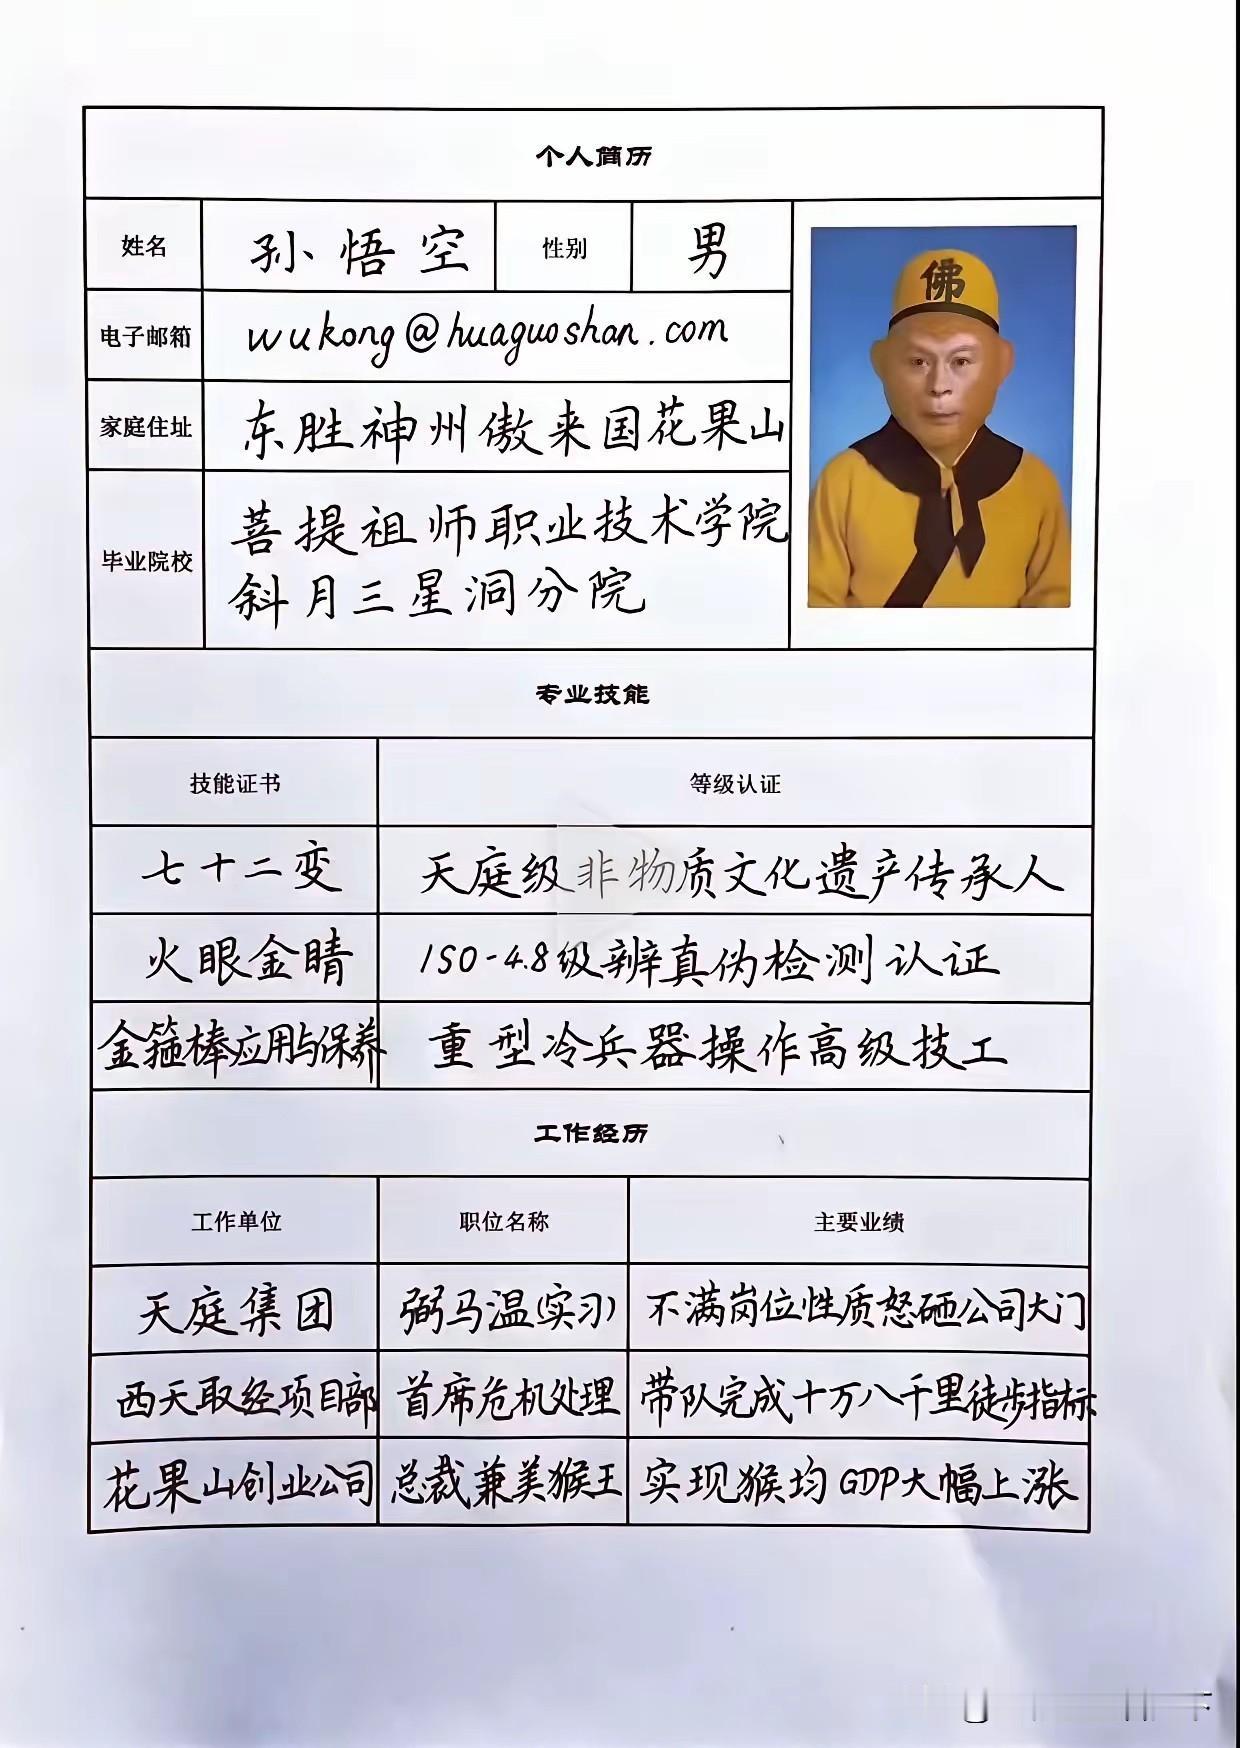 个人简历
姓名 孙悟空 性别 男
佛
电子邮箱 wukong@huaguoshan.com
家庭住址 东胜神州傲来国花果山
毕业院校 菩提祖师职业技术学院
斜月三星洞分院
专业技能
技能证书 等级认证
七十二变 天庭级非物质文化遗产传承人
火眼金睛 ISO-4.8级辨真伪检测认证
金箍棒应用与保养 重型冷兵器操作高级技工
工作经历
工作单位 职位名称 主要业绩
天庭集团 弼马温(实习) 不满岗位性质怒砸公司大门
西天取经项目部 首席危机处理 带队完成十万八千里徒步指标
花果山创业公司 总裁兼美猴王 实现猴均GDP大幅上涨